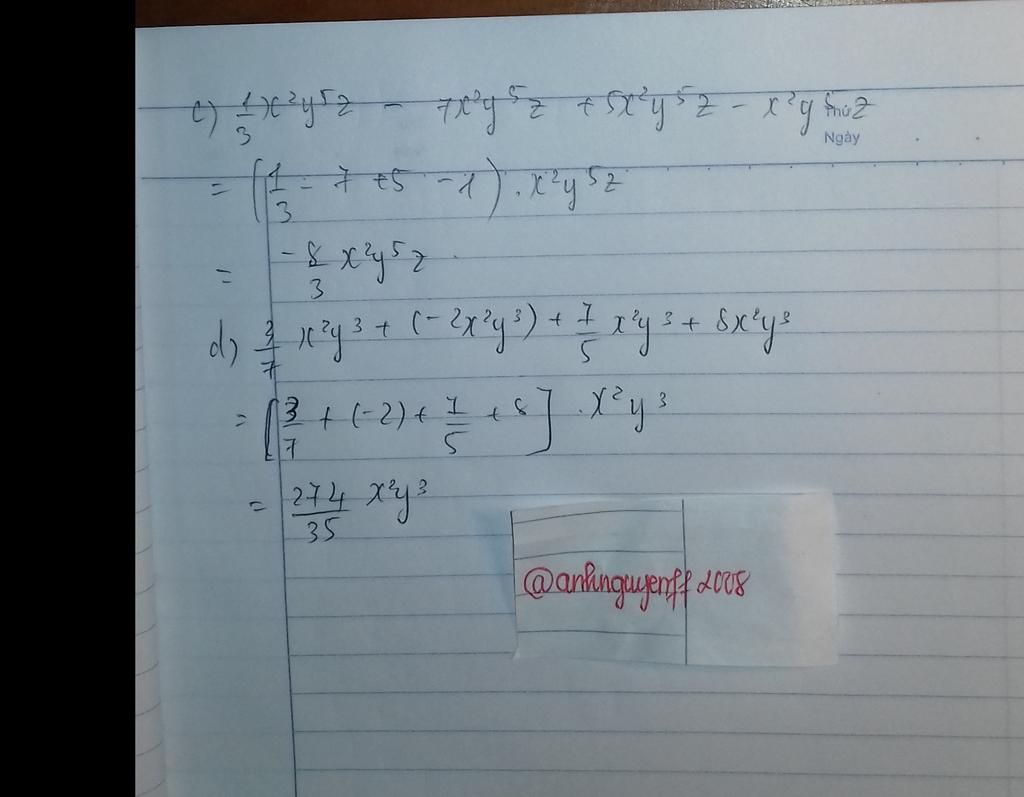 c) 1/3 x²y⁵z - 7x²y⁵z + 5x²y⁵z - x²y⁵z
Thứ
Ngày
= (1/3 - 7 + 5 - 1) . x²y⁵z
= -8/3 x²y⁵z
d) 3/7 x²y³ + (-2x²y³) + 7/5 x²y³ + 8x²y³
= [3/7 + (-2) + 7/5 + 8] . x²y³
= 274/35 x²y³
@anhnguyenff2008